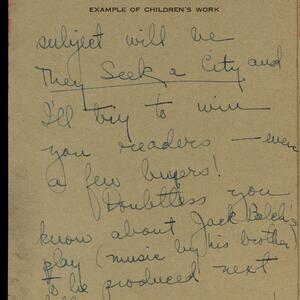 EXAMPLE OF CHILDREN'S WORK
subject will be
They Seek a City and
I'll try to win
you readers — even
a few buyers!
Doubtless you
know about Jack Balch's
play (music by his brother)
to be produced next